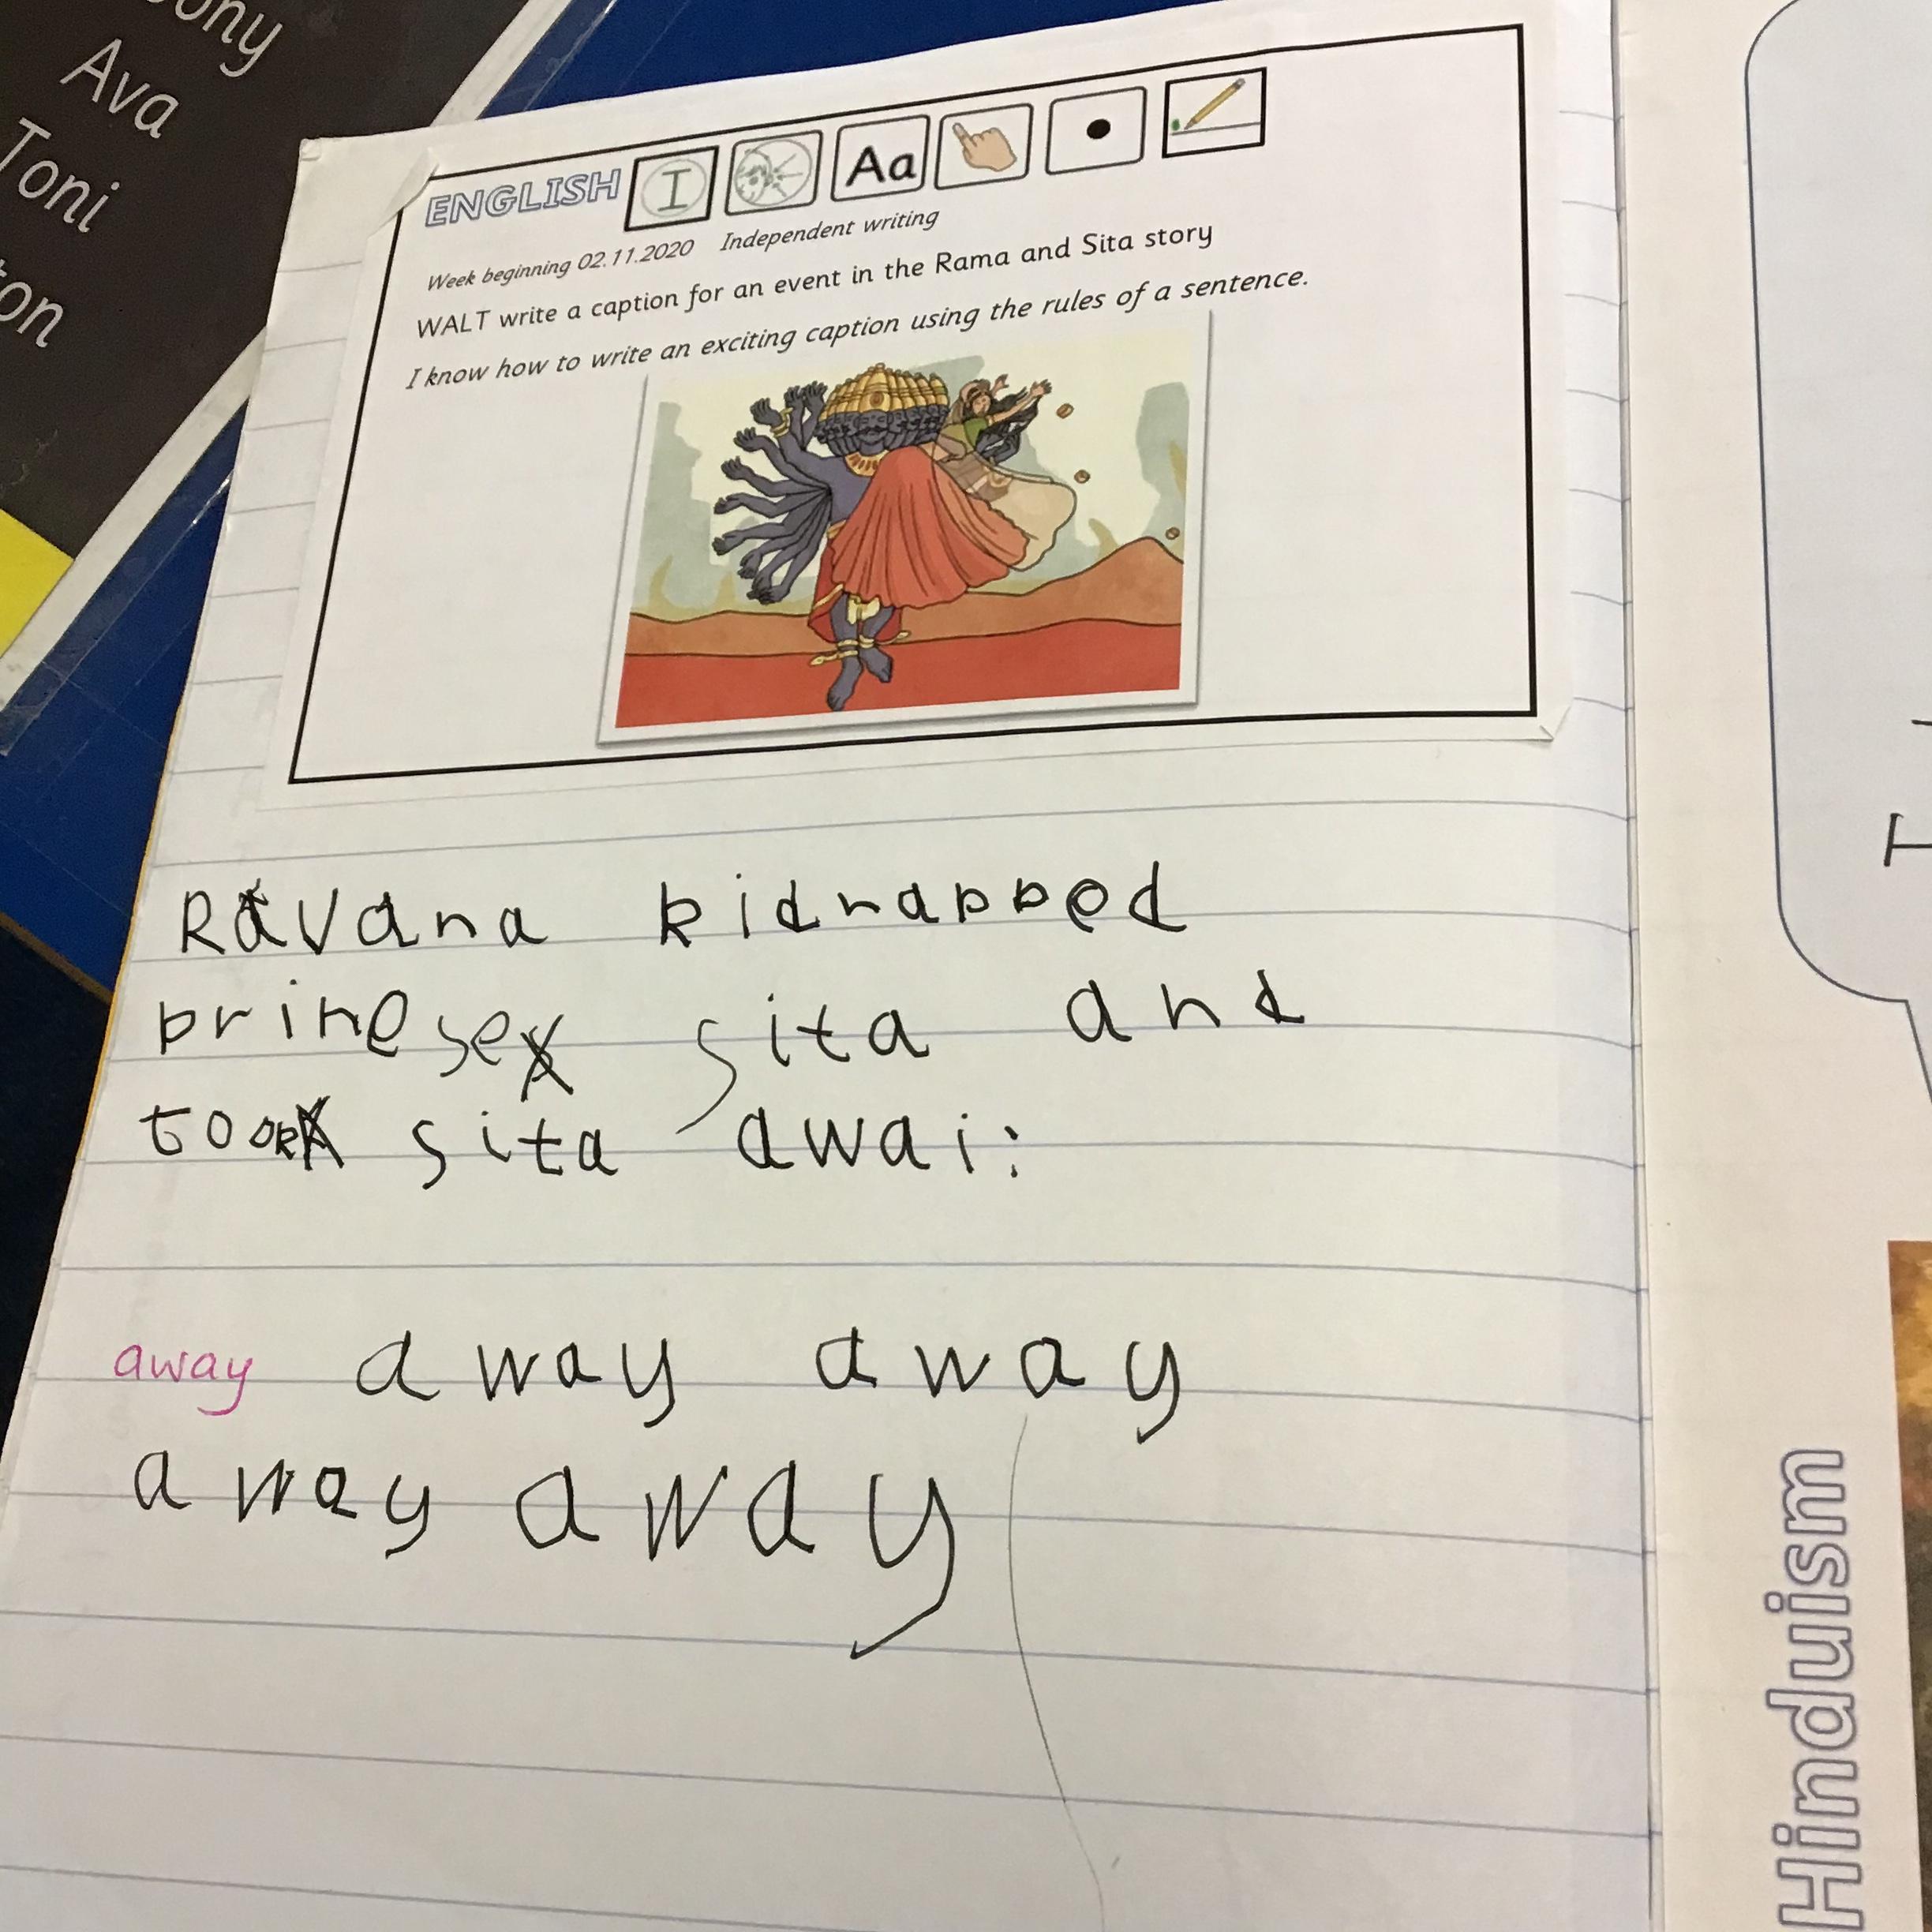 Ava
Toni
ENGLISH I Aa
Week beginning 02.11.2020 Independent writing
WALT write a caption for an event in the Rama and Sita story
I know how to write an exciting caption using the rules of a sentence.
Ravana kidnapped
prinesex sita and
took sita awai:
away away away
away away
Hinduism